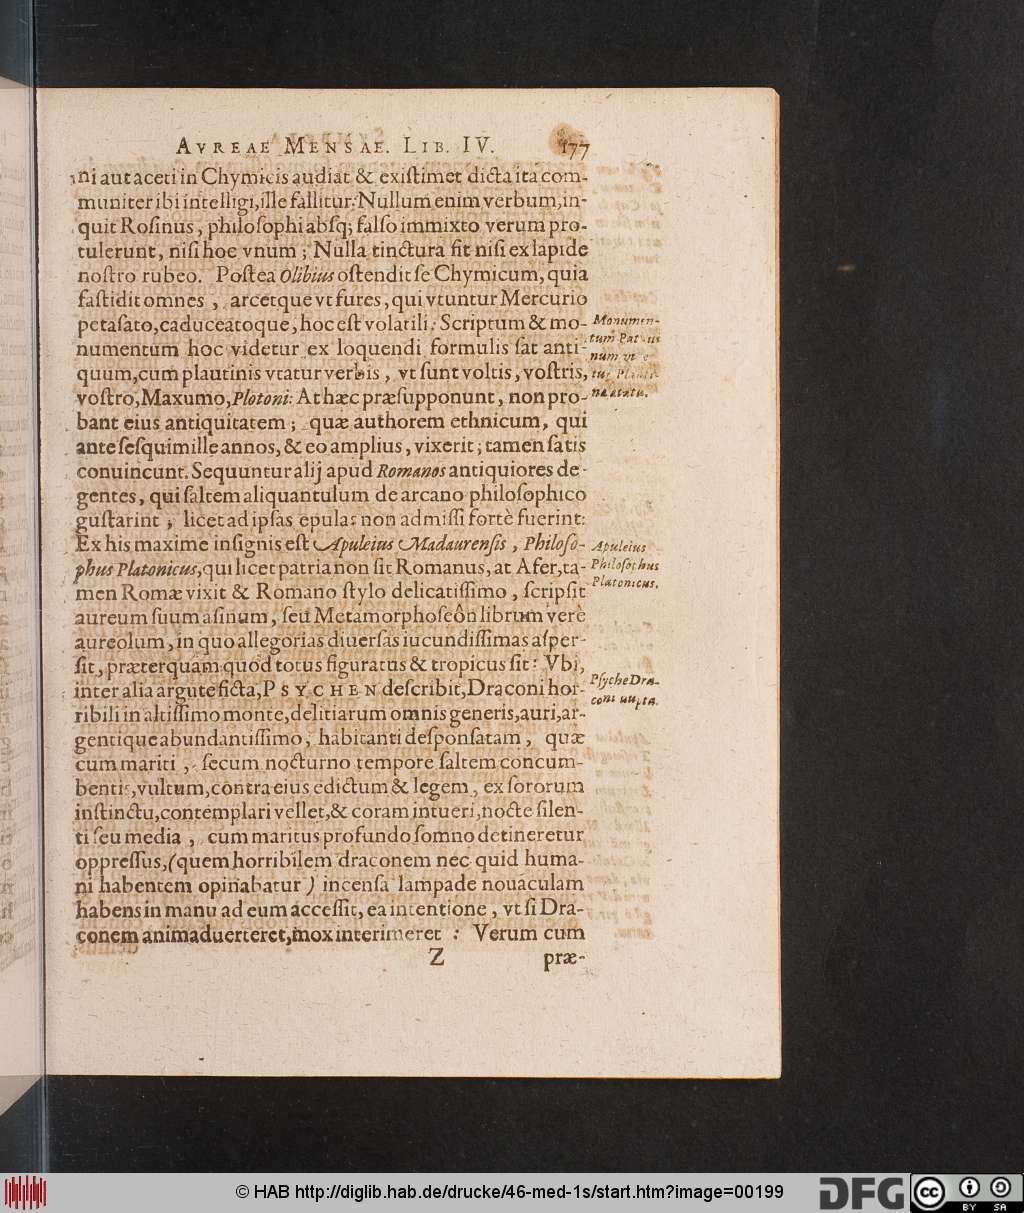 AVREAE MENSAE. LIB. IV. 177
ni aut aceti in Chymicis audiat & exiſtimet dicta ita com-
muniter ibi intelligi, ille fallitur: Nullum enim verbum, in-
quit Roſinus, philoſophi abſq; falſo immixto verum pro-
tulerunt, niſi hoc vnum; Nulla tinctura fit niſi ex lapide
noſtro rubeo. Poſtea Olibius oſtendit ſe Chymicum, quia
faſtidit omnes, arcetque vt fures, qui vtuntur Mercurio
petaſato, caduceatoque, hoc eſt volatili: Scriptum & mo-
numentum hoc videtur ex loquendi formulis ſat anti-
quum, cum plautinis vtatur verbis, vt ſunt voltis, voſtris,
voſtro, Maxumo, Plotoni: At hæc præſupponunt, non pro-
bant eius antiquitatem; quæ authorem ethnicum, qui
ante ſeſquimille annos, & eo amplius, vixerit; tamen ſatis
conuincunt. Sequuntur alij apud Romanos antiquiores de-
gentes, qui ſaltem aliquantulum de arcano philoſophico
guſtarint, licet ad ipſas epulas non admiſſi fortè fuerint:
Ex his maxime inſignis eſt Apuleius Madaurenſis, Philoſo-
phus Platonicus, qui licet patria non ſit Romanus, at Afer, ta-
men Romæ vixit & Romano ſtylo delicatiſſimo, ſcripſit
aureum ſuum aſinum, ſeu Metamorphoſeôn librum verè
aureolum, in quo allegorias diuerſas iucundiſſimas aſper-
ſit, præterquam quod totus figuratus & tropicus ſit: Vbi,
inter alia argute ficta, PSYCHEN deſcribit, Draconi hor-
ribili in altiſſimo monte, delitiarum omnis generis, auri, ar-
gentique abundantiſſimo, habitanti deſponſatam, quæ
cum mariti, ſecum nocturno tempore ſaltem concum-
bentis, vultum, contra eius edictum & legem, ex ſororum
inſtinctu, contemplari vellet, & coram intueri, nocte ſilen-
ti ſeu media, cum maritus profundo ſomno detineretur
oppreſſus, (quem horribilem draconem nec quid huma-
ni habentem opinabatur) incenſa lampade nouaculam
habens in manu ad eum acceſſit, ea intentione, vt ſi Dra-
conem animaduerteret, mox interimeret: Verum cum
Z præ-
Monumen-
tum
num
Apuleius
Philoſophus
Platonicus.
Pſyche Dra-
coni nupta.
© HAB http://diglib.hab.de/drucke/46-med-1s/start.htm?image=00199
DFG
cc BY SA